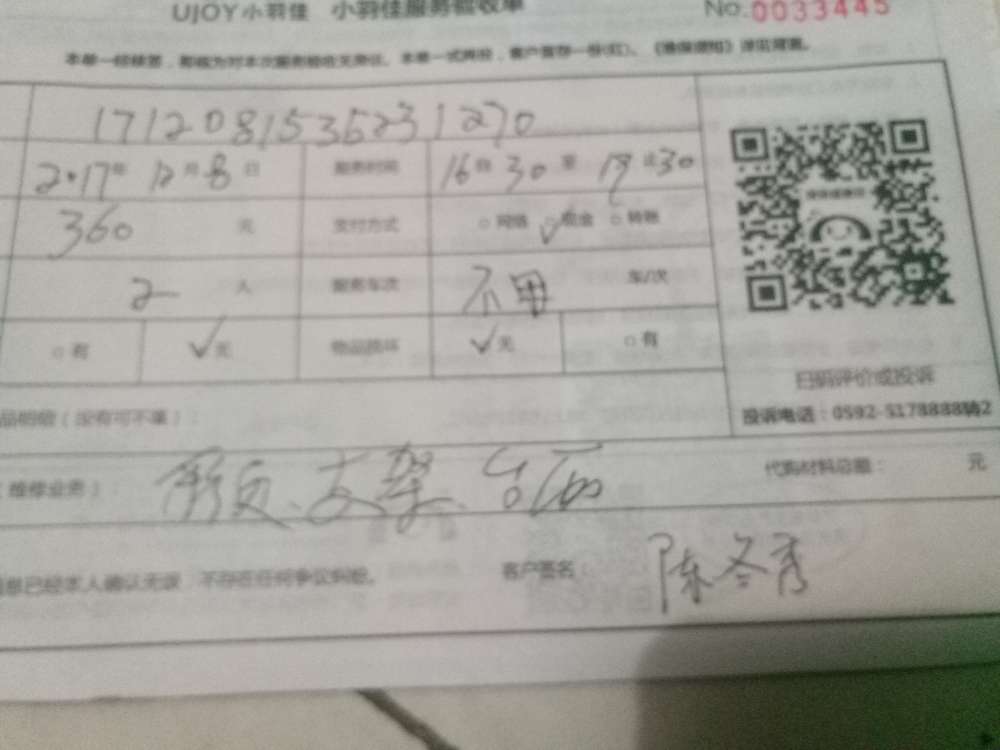 UJOY小羽佳 小羽佳服务验收单 No.0033445
本单一经签署，即视为对本次服务验收无异议。本单一式两份，客户留存一份(红)。《维保须知》详见背面。
17120815353231270
2017年 12月8日 服务时间 16时30至19时30
360 元 支付方式 网络 ✓现金 转账
2 人 服务车次 不用 车/次
有 ✓无 物品损坏 ✓无 有
扫码评价或投诉
投诉电话：0592-5178888转2
品明细（没有可不填）：
（维修业务）： 支架、台面
代购材料总额： 元
息已经本人确认无误，不存在任何争议纠纷。 客户签名： 陈冬秀